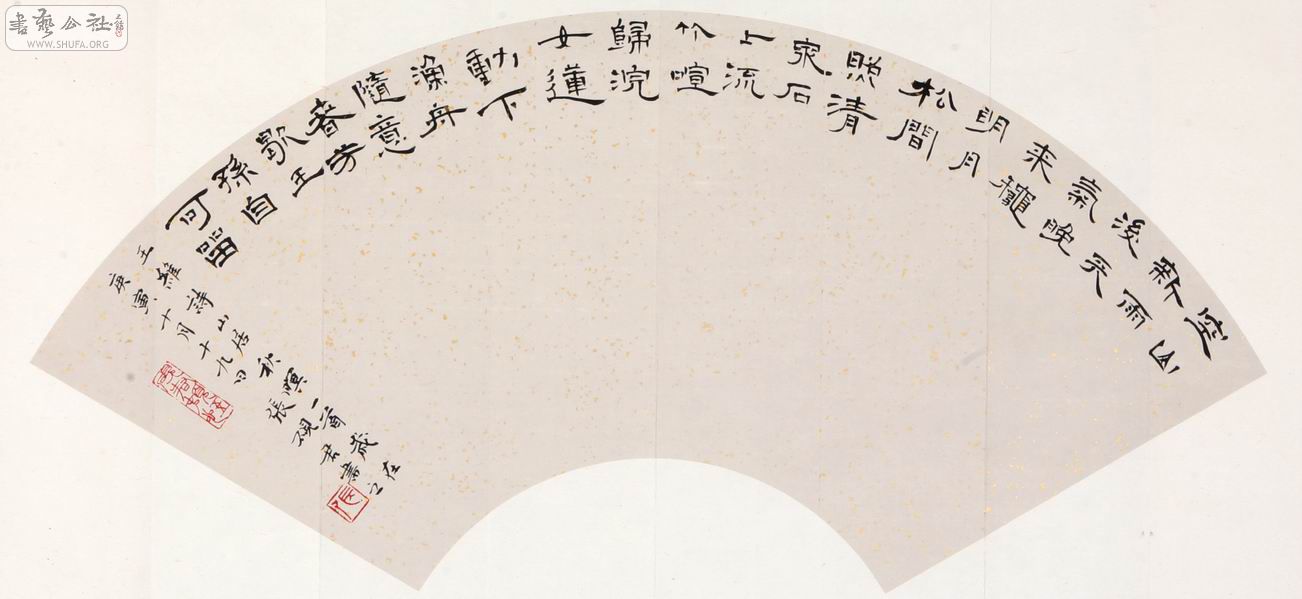 書藝公社
WWW.SHUFA.ORG
空山
新雨
後天
氣晚
来龝
明月
松間
照清
泉石
上流
竹喧
歸浣
女蓮
動下
漁舟
隨意
春芳
歇王
孫自
可留
王維詩山居秋暝一首歲在
庚寅十月十九日張硯君書之